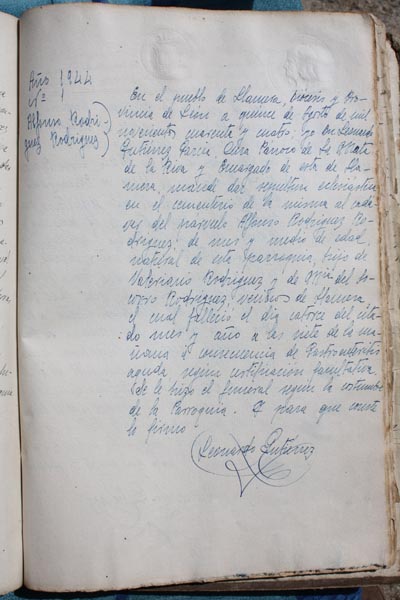 Año 1944
Nº 1
Alfonso Rodrí-
guez Rodríguez
En el pueblo de Llamera Diócesis y Pro-
vincia de León a quince de Agosto de mil
novecientos cuarenta y cuatro: yo Dn Leonardo
Gutiérrez García, Cura Párroco de La Mata
de la Riva y Encargado de esta de Lla-
mera, mandé dar sepultura eclesiástica
en el cementerio de la misma al cadá-
ver del párvulo Alfonso Rodríguez Ro-
dríguez; de mes y medio de edad,
natural de esta parroquia, hijo de
Valeriano Rodríguez y de Mª del So-
corro Rodríguez, vecinos de Llamera,
el cual falleció el día catorce del cita-
do mes y año a las siete de la ma-
ñana a consecuencia de Gastroenteritis
aguda, según certificación facultativa.
Se le hizo el funeral según la costumbre
de la Parroquia. Y para que conste
lo firmo
Leonardo Gutiérrez